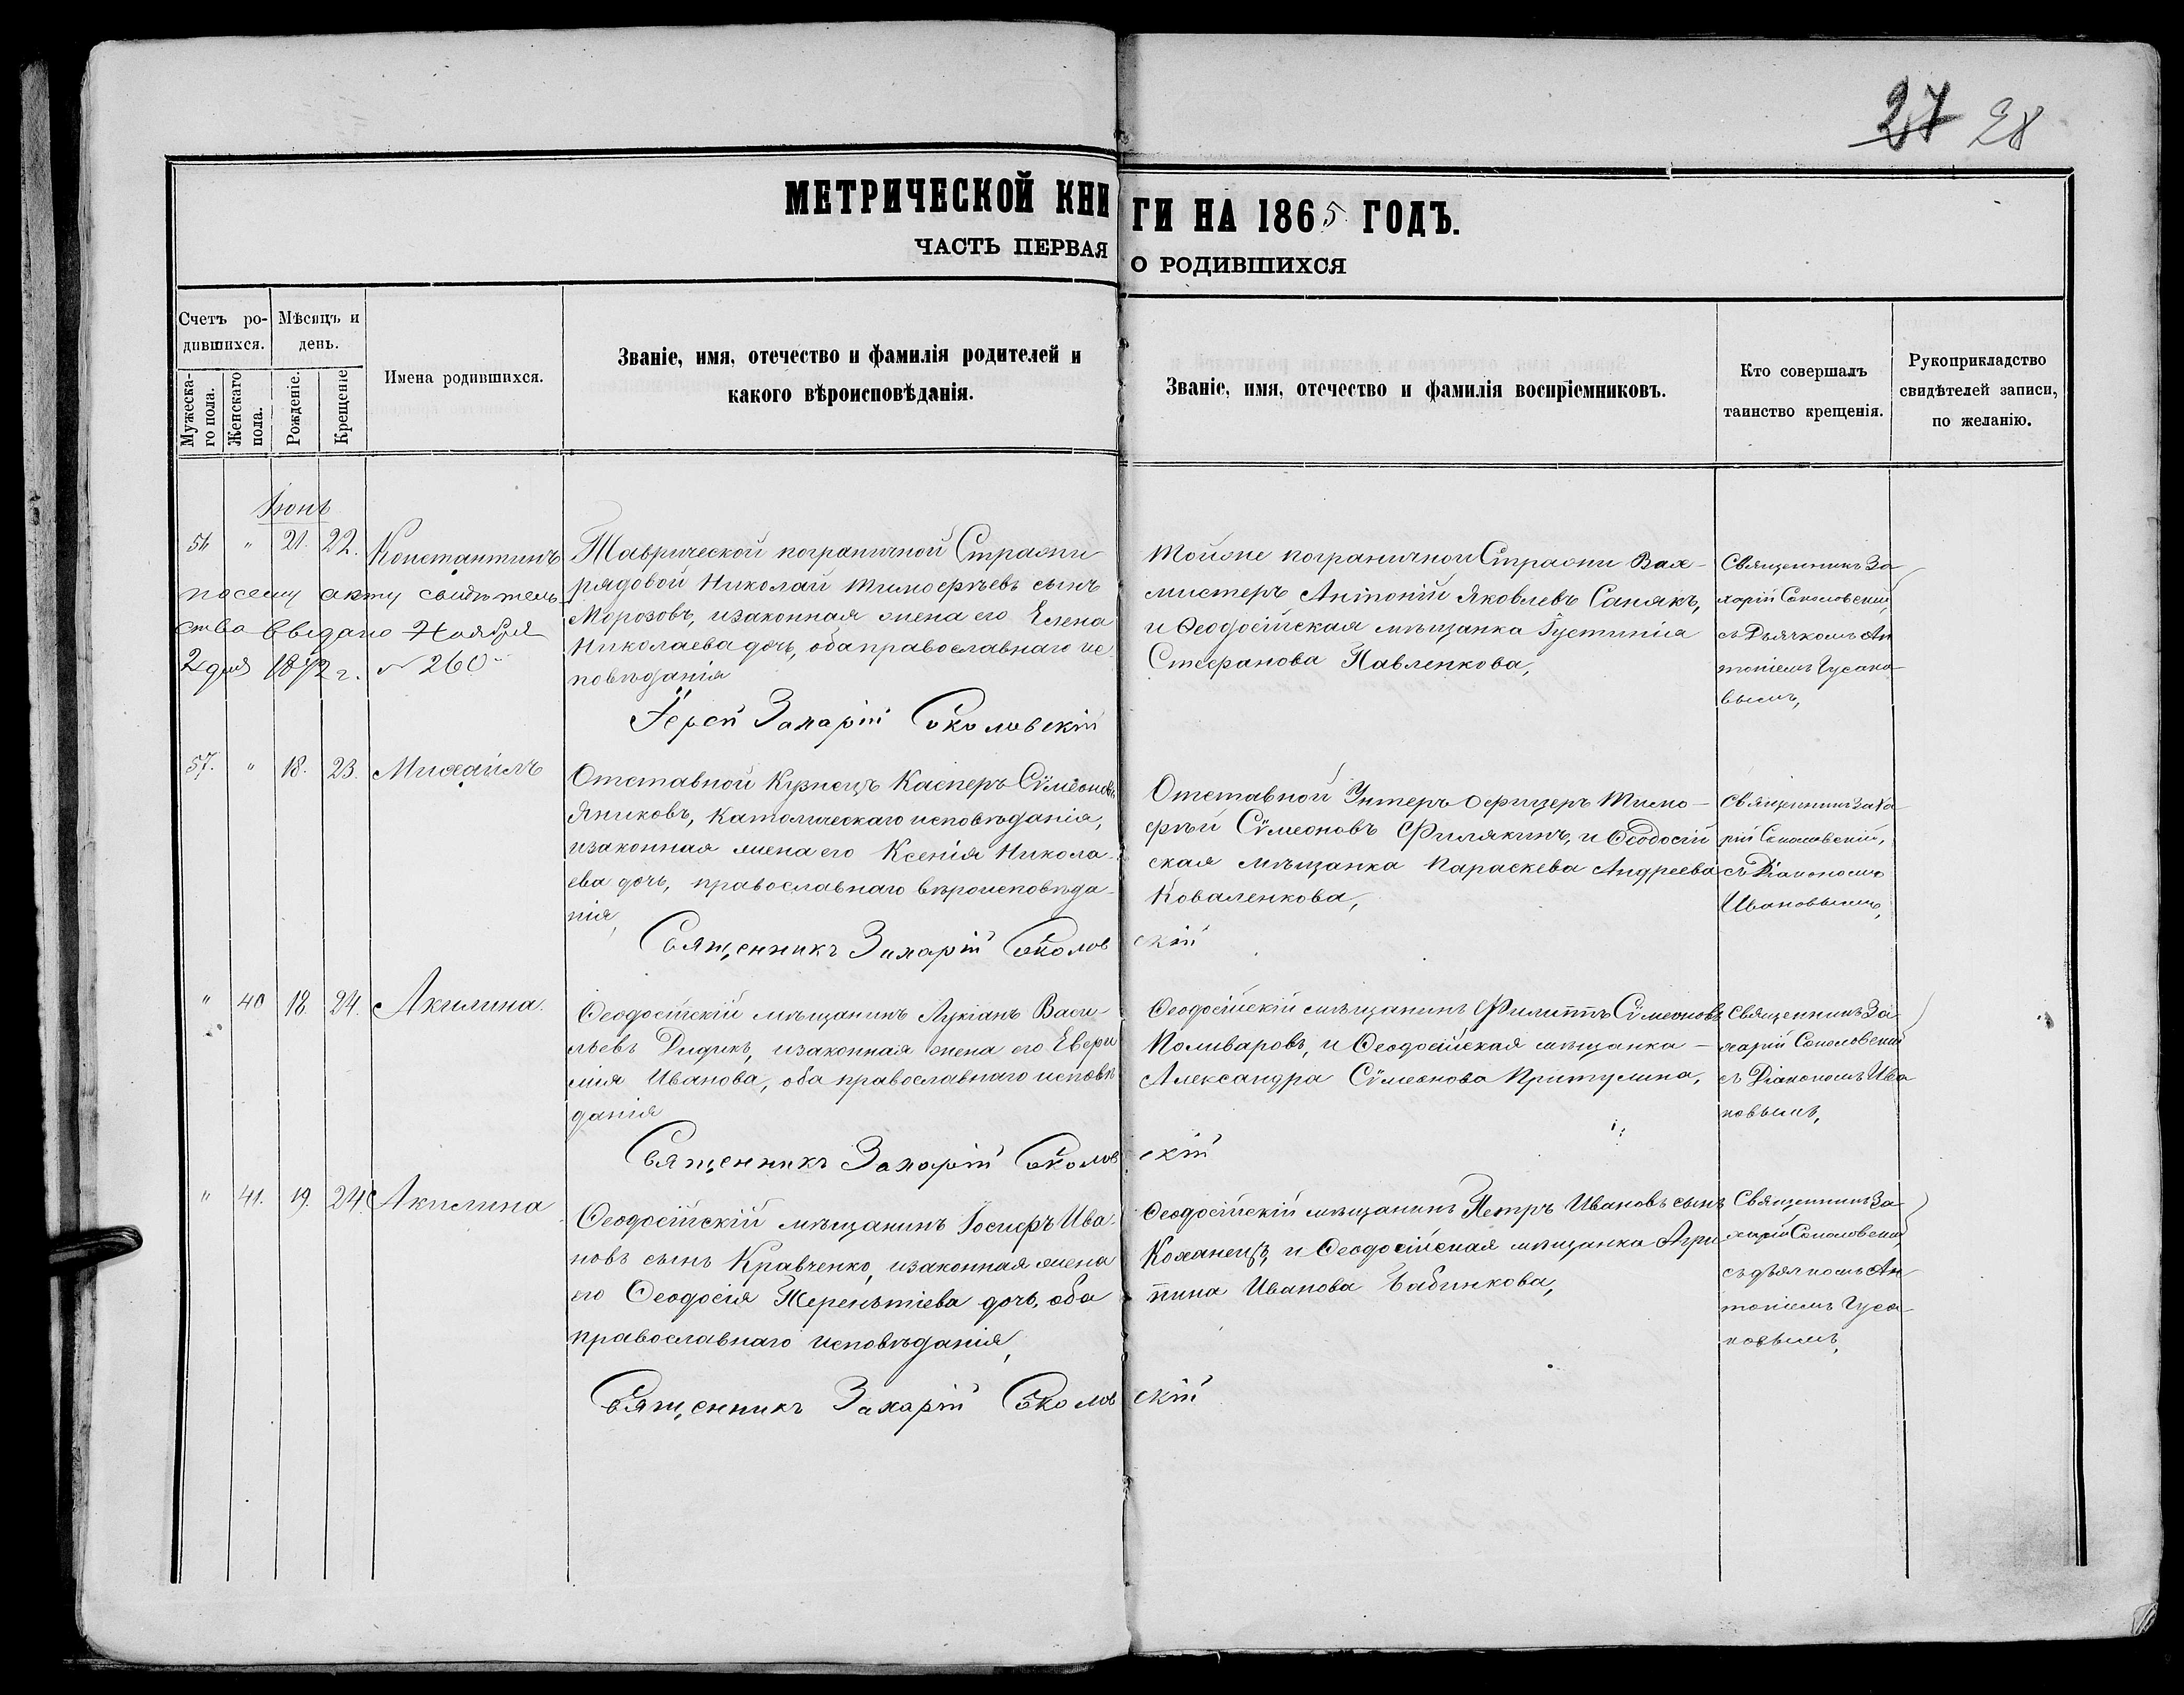 27 28
МЕТРИЧЕСКОЙ КНИГИ НА 1865 ГОДЪ.
ЧАСТЬ ПЕРВАЯ О РОДИВШИХСЯ
Счетъ ро-
дившихся.
Мѣсяцъ и
день.
Мужеска-
го пола.
Женскаго
пола.
Рожденіе.
Крещеніе
Имена родившихся.
Званіе, имя, отечество и фамилія родителей и
какого вѣроисповѣданія.
Званіе, имя, отечество и фамилія воспріемниковъ.
Кто совершалъ
таинство крещенія.
Рукоприкладство
свидѣтелей записи,
по желанію.
Іюнь
56 " 21. 22. Константинъ
по сему акту свидѣтель
ство выдано Ноября
2 дня 1872 г. № 260
Таврической пограничной Стражи
рядовой Николай Тимофѣевъ сынъ
Морозовъ, изаконная жена его Елена
Николаева дочь, оба православнаго ис
повѣданія
Іерей Захарій Соколовскій
Тойже пограничной Стражи Вах-
мистеръ Антоній Яковлевъ Санякъ,
и Ѳеодосійская мѣщанка Іустинія
Стефанова Павленкова,
Священникъ За
харій Соколовскій,
съ Дьячкомъ Ан
тоніемъ Гусако-
вымъ,
57. " 18. 23. Михаилъ
Отставной Кузнецъ Касперъ Сѵмеоновъ
Яниковъ, Католическаго исповѣданія,
изаконная жена его Ксенія Никола-
ева дочь, православнаго вѣроисповѣда-
нія,
Священникъ Захарій Соколовскій
Отставной Унтеръ Офицеръ Тимо-
фѣй Сѵмеоновъ Филякинъ, и Ѳеодосій
ская мѣщанка Параскева Андреева
Коваленкова,
Священникъ Заха
рій Соколовскій,
съ Діакономъ
Ивановымъ,
" 40 18. 24. Акилина.
Ѳеодосійскій мѣщанинъ Лукіанъ Васи-
льевъ Дидикъ, изаконная жена его Евфи
мія Иванова, оба православнаго исповѣ
данія
Священникъ Захарій Соколовскій
Ѳеодосійскій мѣщанинъ Филиппъ Сѵмеоновъ
Поливаровъ, и Ѳеодосійская мѣщанка -
Александра Сѵмеонова Притулина,
Священникъ За
харій Соколовскій
съ Діакономъ Ива
новымъ,
" 41. 19. 24. Акилина
Ѳеодосійскій мѣщанинъ Іосифъ Ива-
новъ сынъ Кравченко, изаконная жена
его Ѳеодосія Терентіева дочь, оба
православнаго исповѣданія,
Священникъ Захарій Соколовскій
Ѳеодосійскій мѣщанинъ Петръ Ивановъ сынъ
Коханецъ, и Ѳеодосійская мѣщанка Агри
пина Иванова Бабинкова,
Священникъ За-
харій Соколовскій,
съ дьячкомъ Ан
тоніемъ Гуса-
ковымъ,